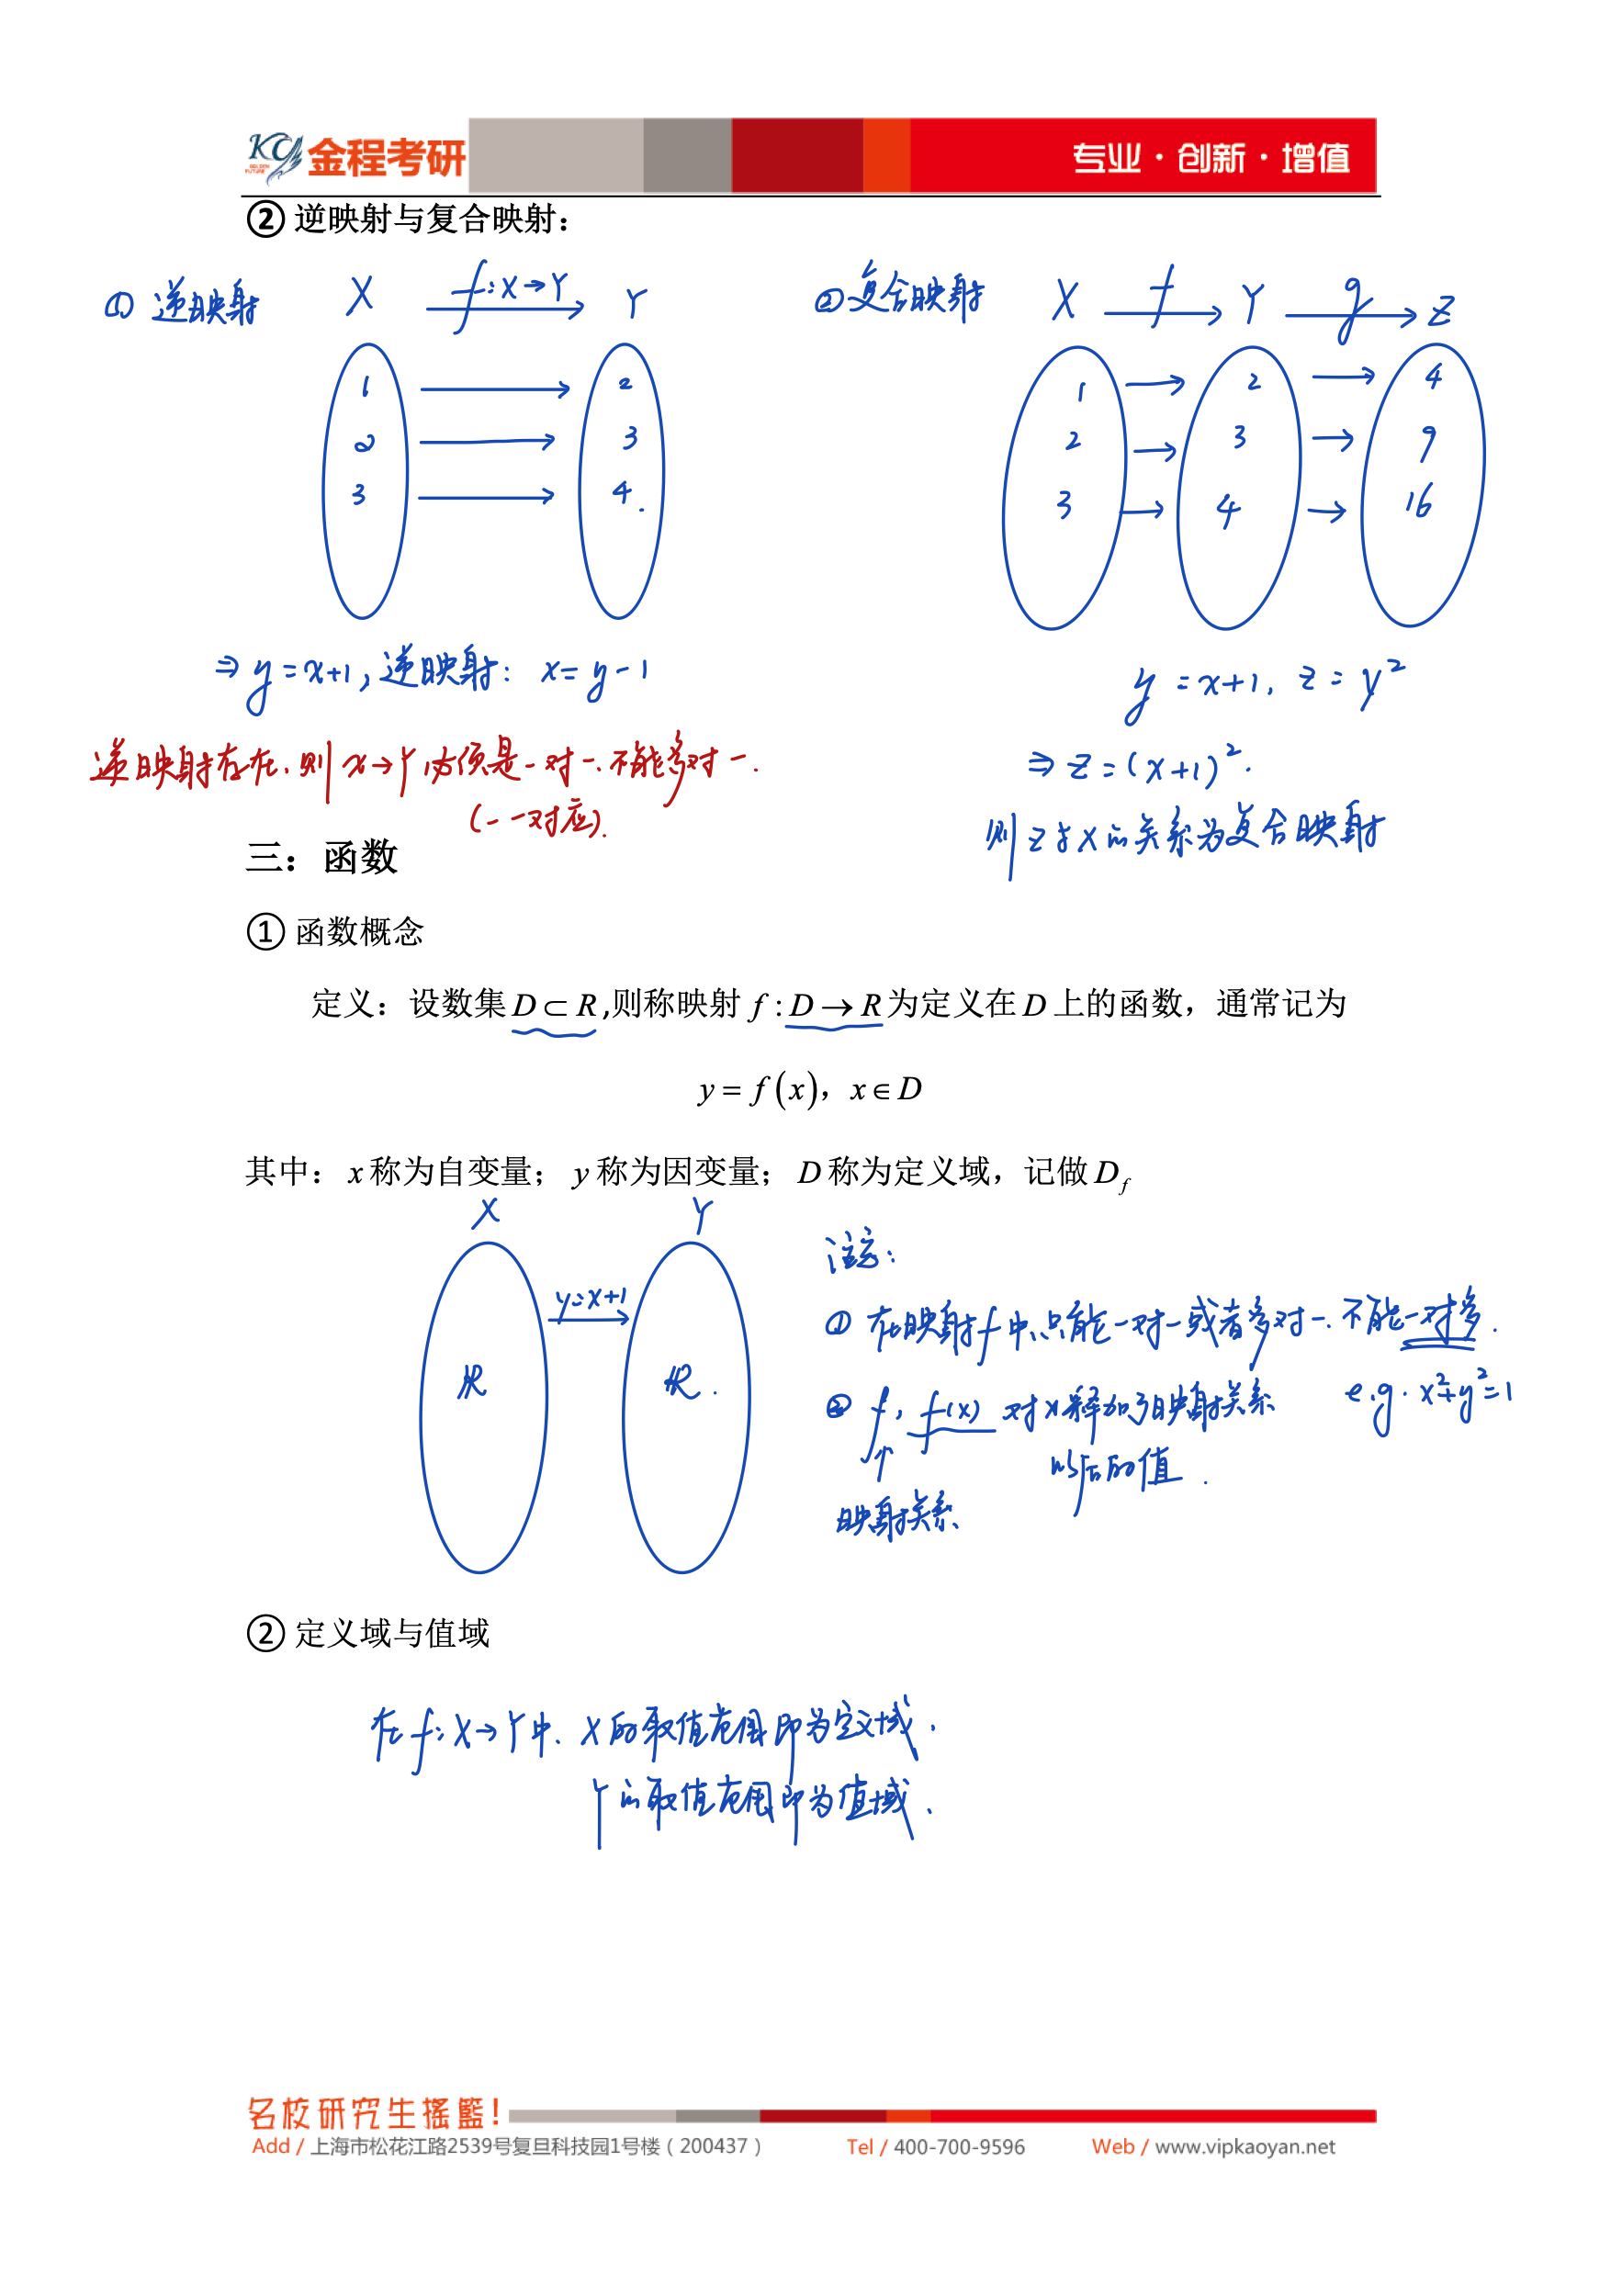 KC GOLDEN FUTURE 金程考研 专业·创新·增值
② 逆映射与复合映射：
① 逆映射 X f:X→Y Y
1 2
2 3
3 4.
⇒ y=x+1, 逆映射: x=y-1
逆映射存在, 则 x→Y 必须是一对一. 不能多对一.
(一一对应).
② 复合映射 X f Y g Z
1 → 2 → 4
2 → 3 → 9
3 → 4 → 16
y=x+1, z=y²
⇒ z=(x+1)².
则 z 与 x 的关系为复合映射
三：函数
① 函数概念
定义：设数集 D⊂R ,则称映射 f:D→R 为定义在 D 上的函数，通常记为
y=f(x)，x∈D
其中：x 称为自变量；y 称为因变量；D 称为定义域，记做 D_f
X Y
y=x+1
R R.
注意:
① 在映射f中,只能一对一或者多对一. 不能一对多.
e.g. x²+y²=1
② f, f(x) 对x释加了映射关系
以后的值.
↑
映射关系
② 定义域与值域
在 f:X→Y中. X的取值范围即为定义域.
Y的取值范围即为值域.
名校研究生摇篮！
Add / 上海市松花江路2539号复旦科技园1号楼（200437） Tel / 400-700-9596 Web / www.vipkaoyan.net